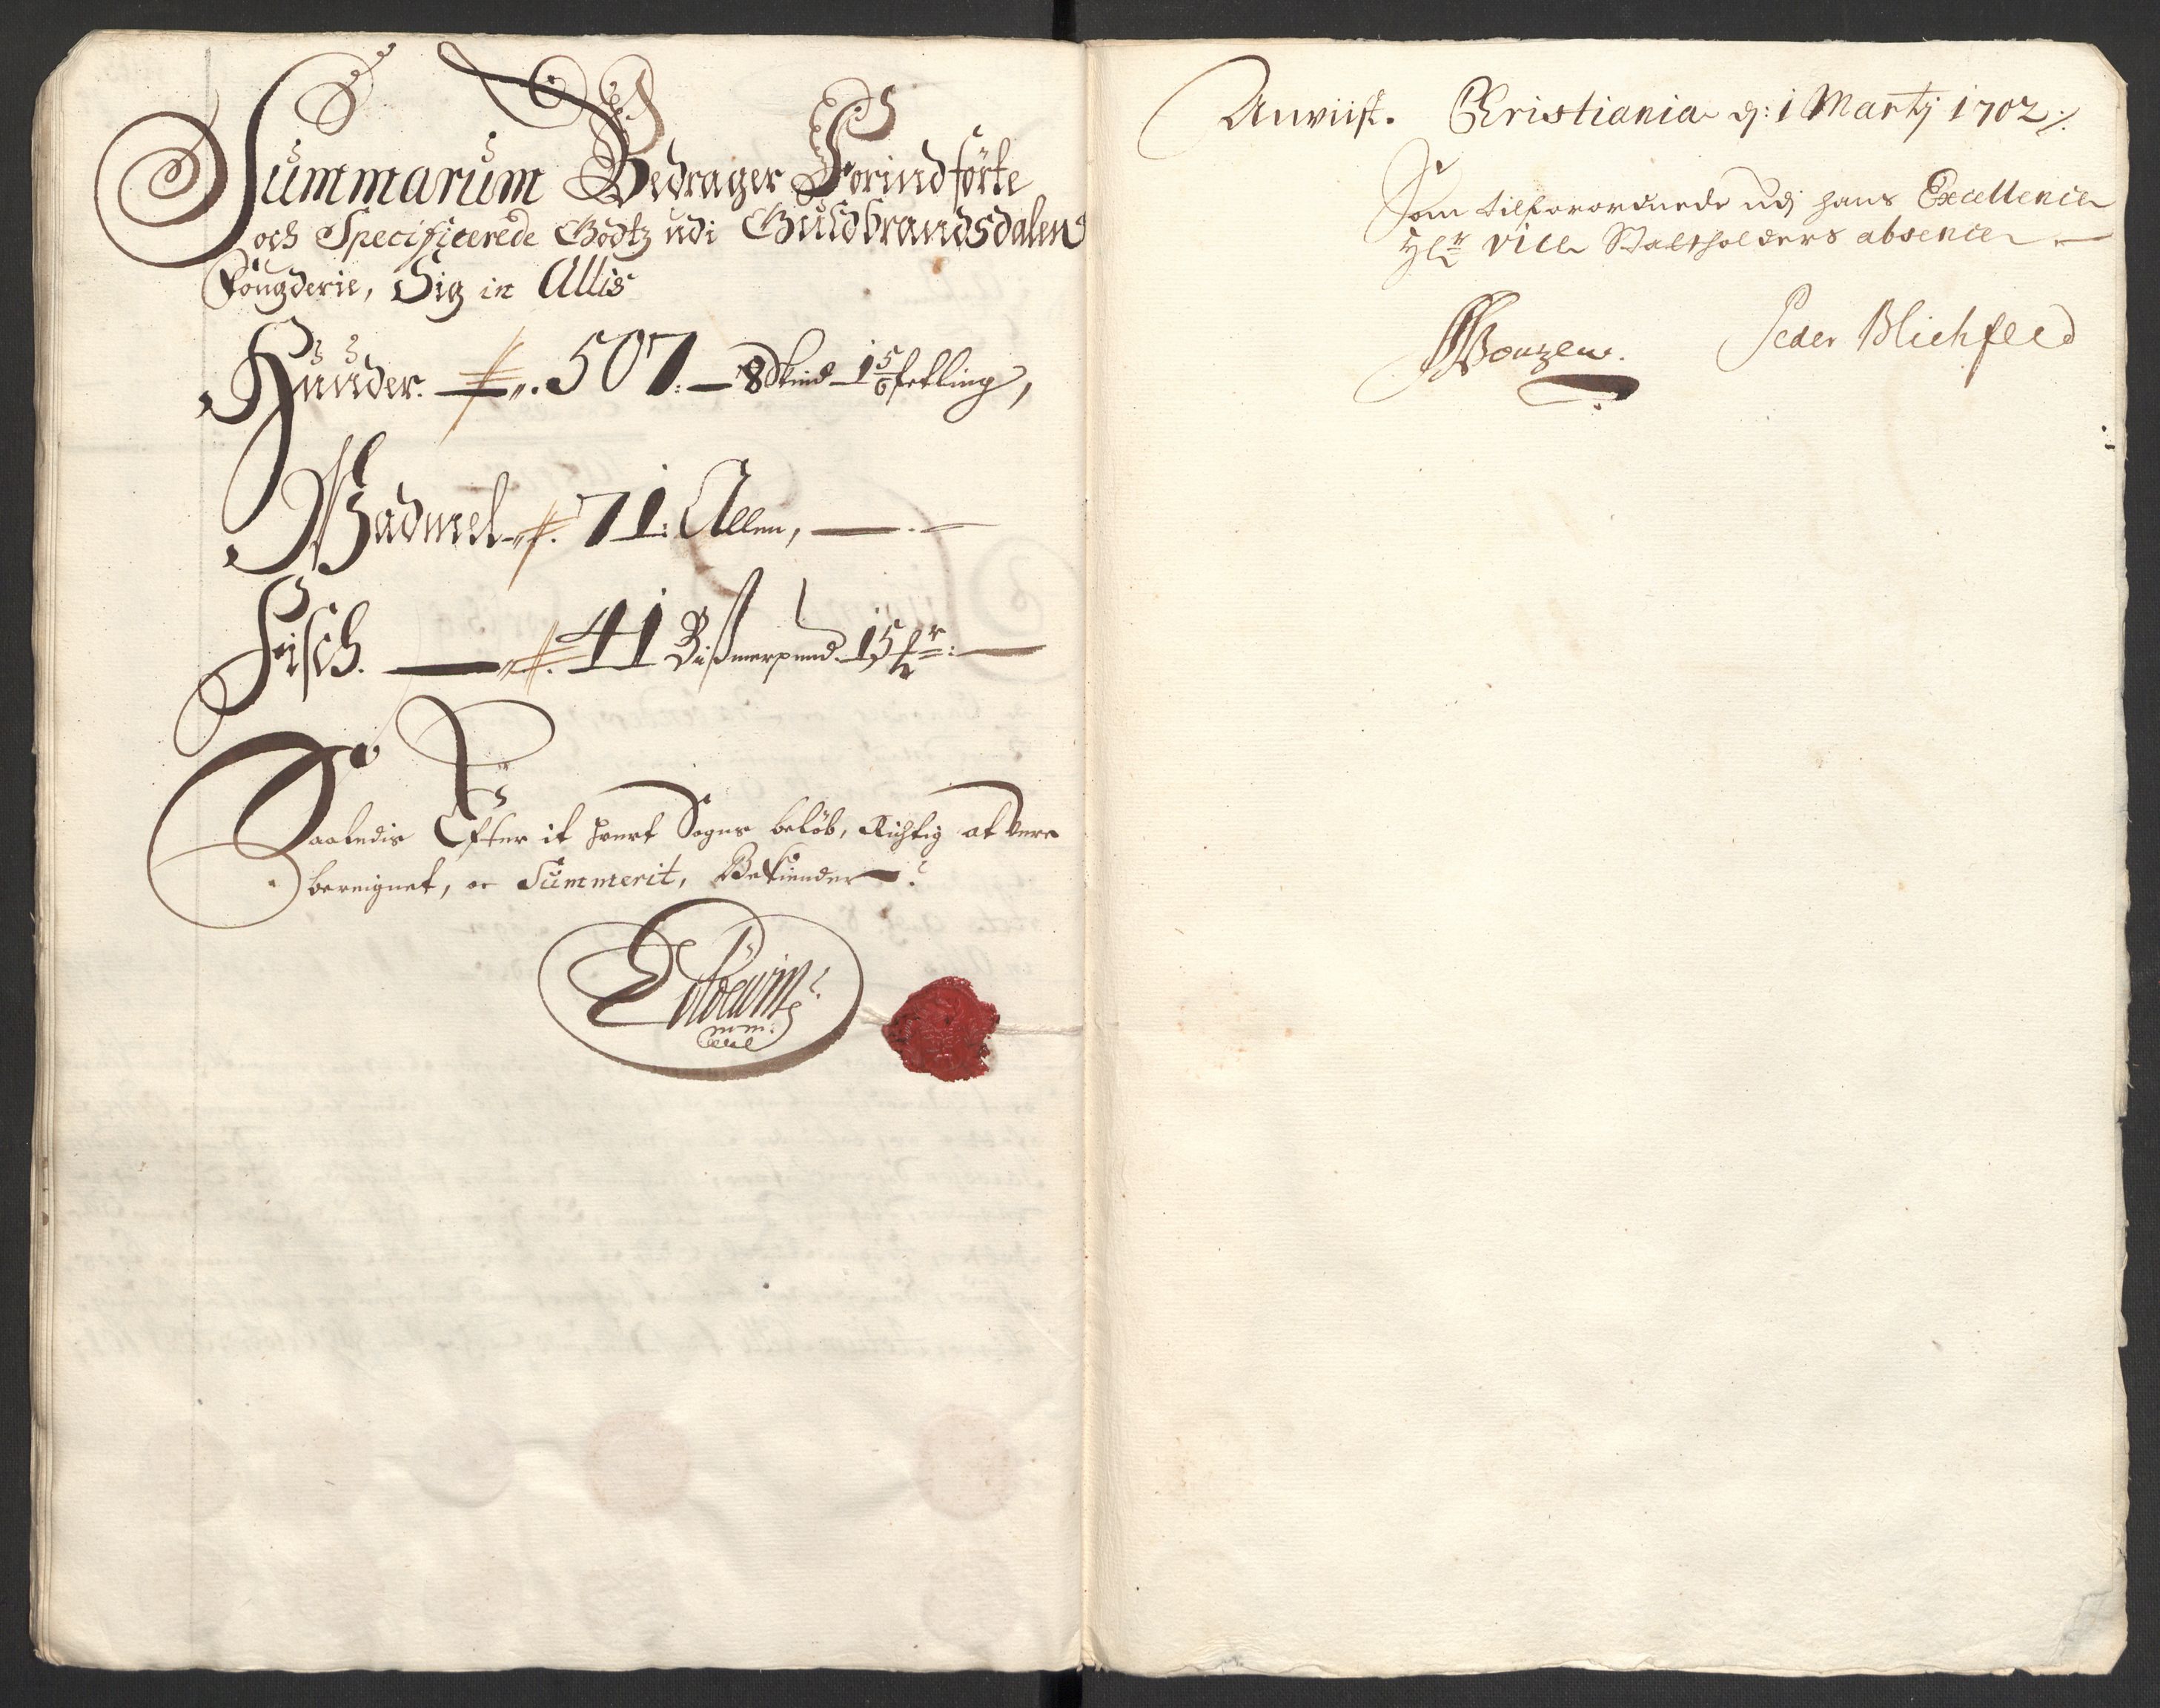 Summarum Bedrager Forindførte
och Specificerede Godtz udi Guldbrandsdalens
Fougderie, Sig in Allis
Hunder. 507: 8 Skind 1 5/6 fetling,
Wadmel 71: Allen,
Fisch. 41 Bißmerpund 15 ℔r:
Saaledis Efter it hvert Sogns beløb, Richtig at vere
beregnet, oc Summerit, Bekiender
mm:
Anviist. Christiania d: 1 Martij 1702
Som tilforordnede udj hans Excellence
Hr Vice Statholders absence
Peder Blichfeld